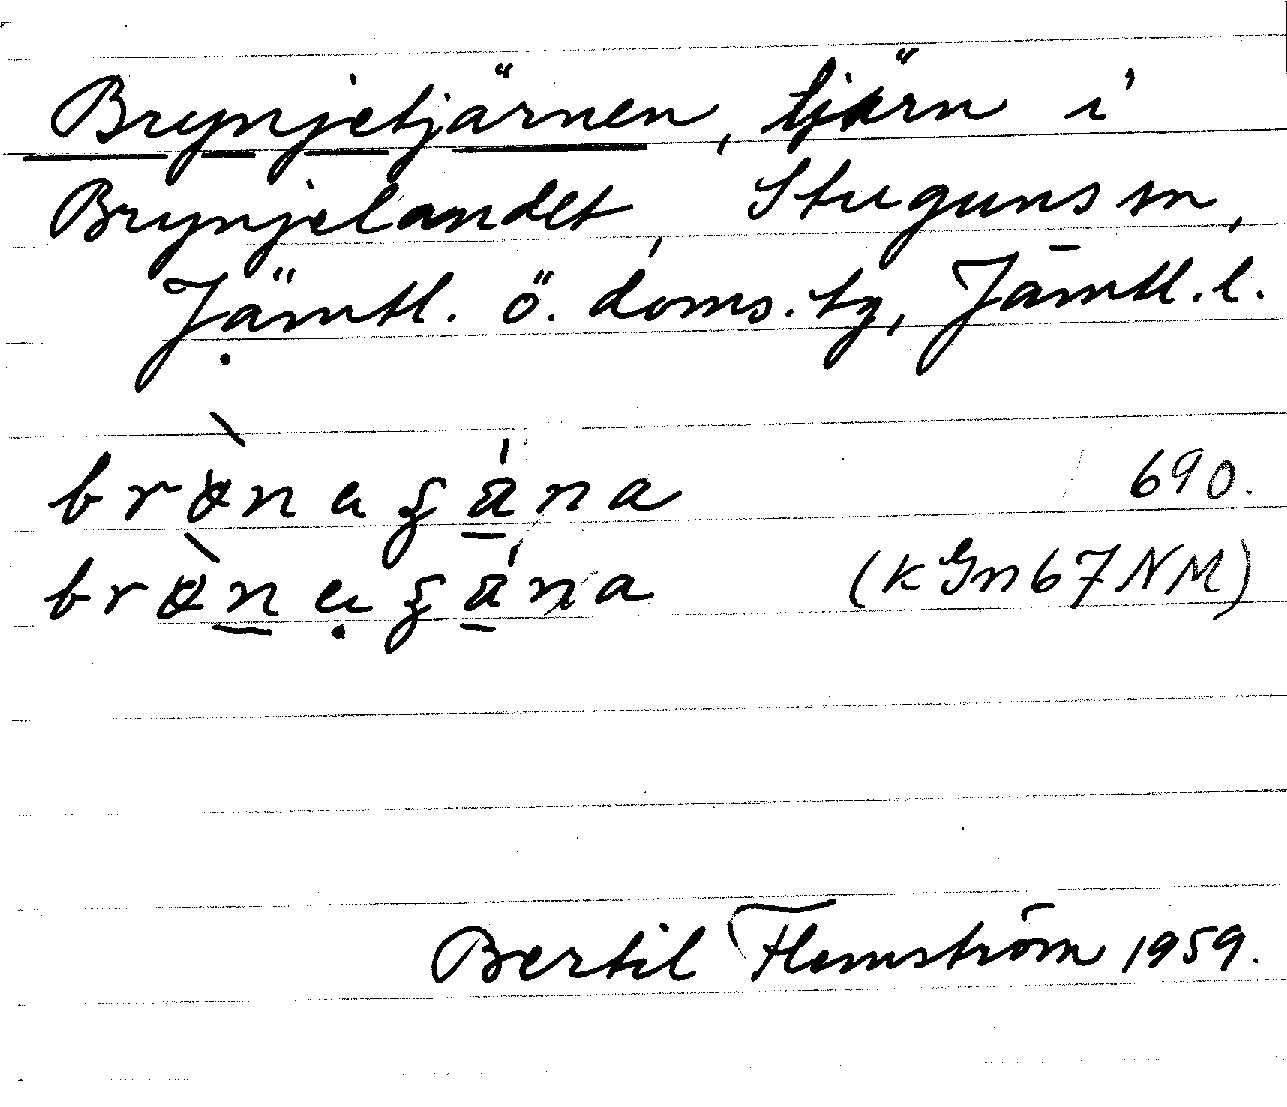 Brynjetjärnen, tjärn i
Brynjelandet, Stuguns sn,
Jämtl. ö. doms.tg, Jämtl. l.
690.
(KGn67NM)
Bertil Flemström 1959.